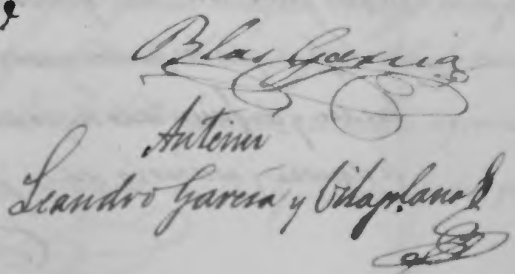 Blas Garcia
Antemi
Leandro García y Vilaplana